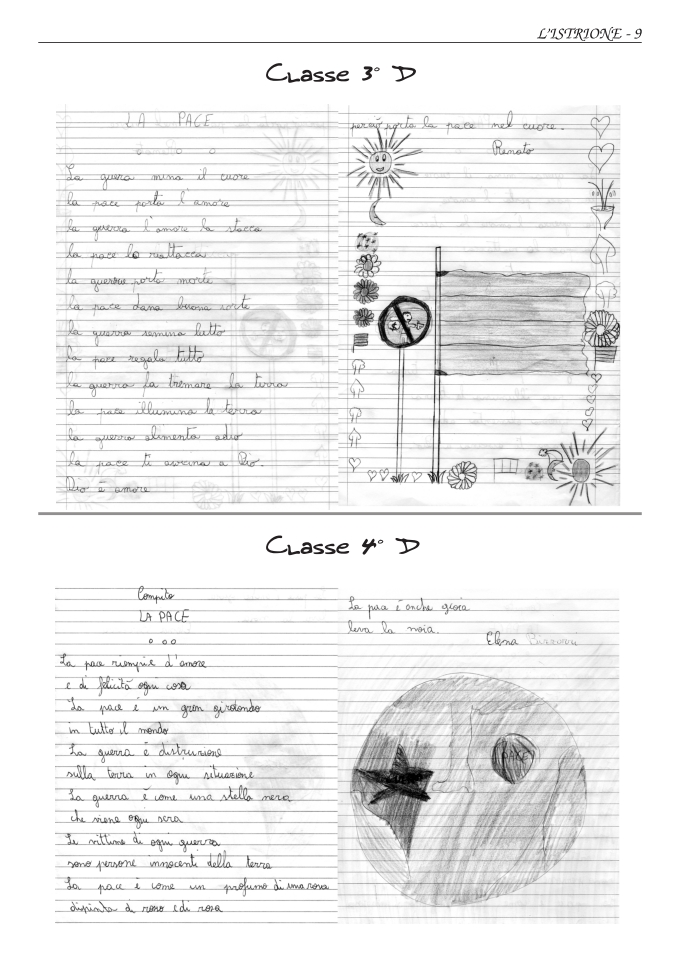 L'ISTRIONE - 9
Classe 3° D
LA PACE
La guera mina il cuore
la pace porta l'amore
la guerra l'amore la stacca
la pace lo riattacca
la guerra porta morte
la pace dana buona sorte
la guerra semina lutto
la pace regala tutto
la guerra fa tremare la terra
la pace illumina la terra
la guerra alimenta odio
la pace ti avicina a Dio.
Dio è amore
perciò porta la pace nel cuore.
Renato
Classe 4° D
Compito
LA PACE
La pace riempie d'amore
e di felicità ogni cosa
La pace è un gran girotondo
in tutto il mondo
La guerra è distruzione
sulla terra in ogni situazione
La guerra è come una stella nera
che viene ogni sera
Le vittime di ogni guerra
sono persone innocenti della terra
La pace è come un profumo di una rosa
dipinta di rosso e di rosa
La pace è anche gioia
leva la noia.
Elena
PACE